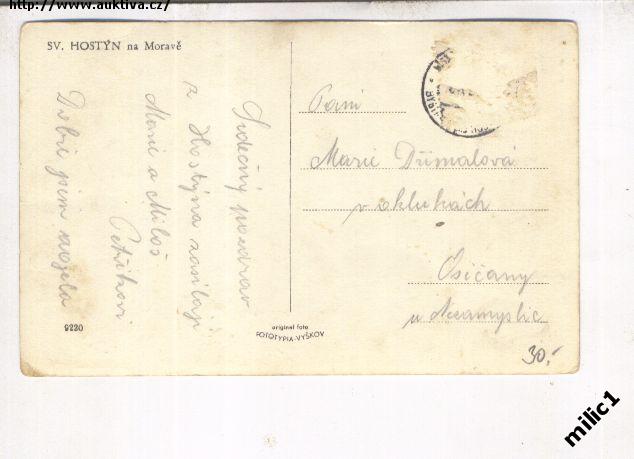 http://www.auktiva.cz/
SV. HOSTÝN na Moravě
Srdečný pozdrav
z Hostýna zasílají
Marie a Miloš
Petříkovi
Dobře jsem dojela
9220
original foto
FOTOTYPIA-VYŠKOV
Paní
Marie Dřímalová
v
Osíčany
u Nezamyslic
30,-
milic1